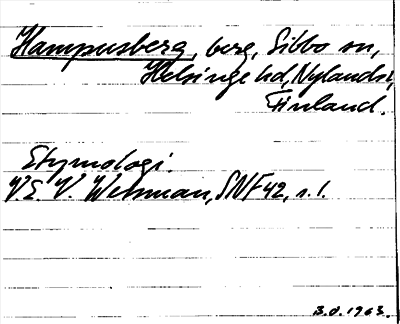 Hampusberg, berg, Sibbo sn,
Helsinge hd, Nylands l,
Finland.
Etymologi.
V.E.V. Wessman, SNF 42, s. 1.
B.d. 1963.